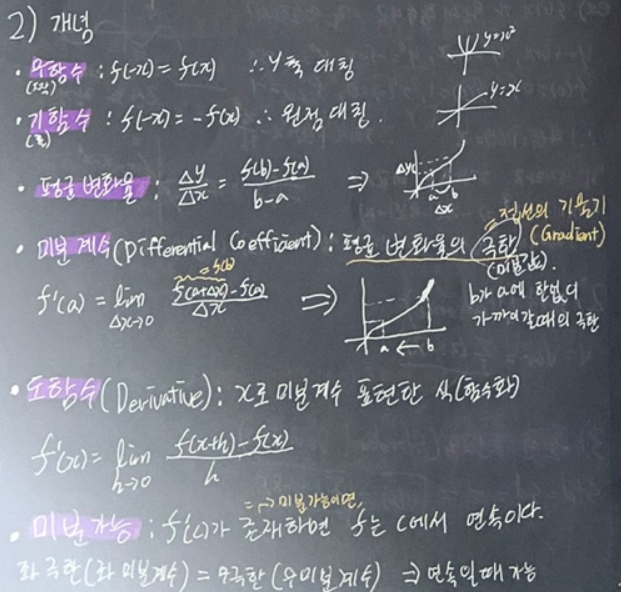 2) 개념
• 우함수 : f(-x) = f(x) ∴ y축 대칭
(짝)
y=x²
• 기함수 : f(-x) = -f(x) ∴ 원점 대칭.
(홀)
y=x
• 평균 변화율 : Δy/Δx = f(b)-f(a)/b-a ⇒
Δy a b
Δx
= 접선의 기울기
(Gradient)
• 미분 계수(Differential Coefficient) : 평균 변화율의 극한
(미분값).
= f(b)
f'(a) = lim Δx→0 f(a+Δx)-f(a)/Δx ⇒
a ← b
b가 a에 한없이
가까이갈때의 극한
• 도함수(Derivative) : x로 미분계수 표현한 식(함수화)
f'(x) = lim h→0 f(x+h)-f(x)/h
=→ 미분가능이면,
• 미분가능 : f'(c)가 존재하면 f는 c에서 연속이다.
좌극한(좌미분계수) = 우극한(우미분계수) ⇒ 연속일때 가능